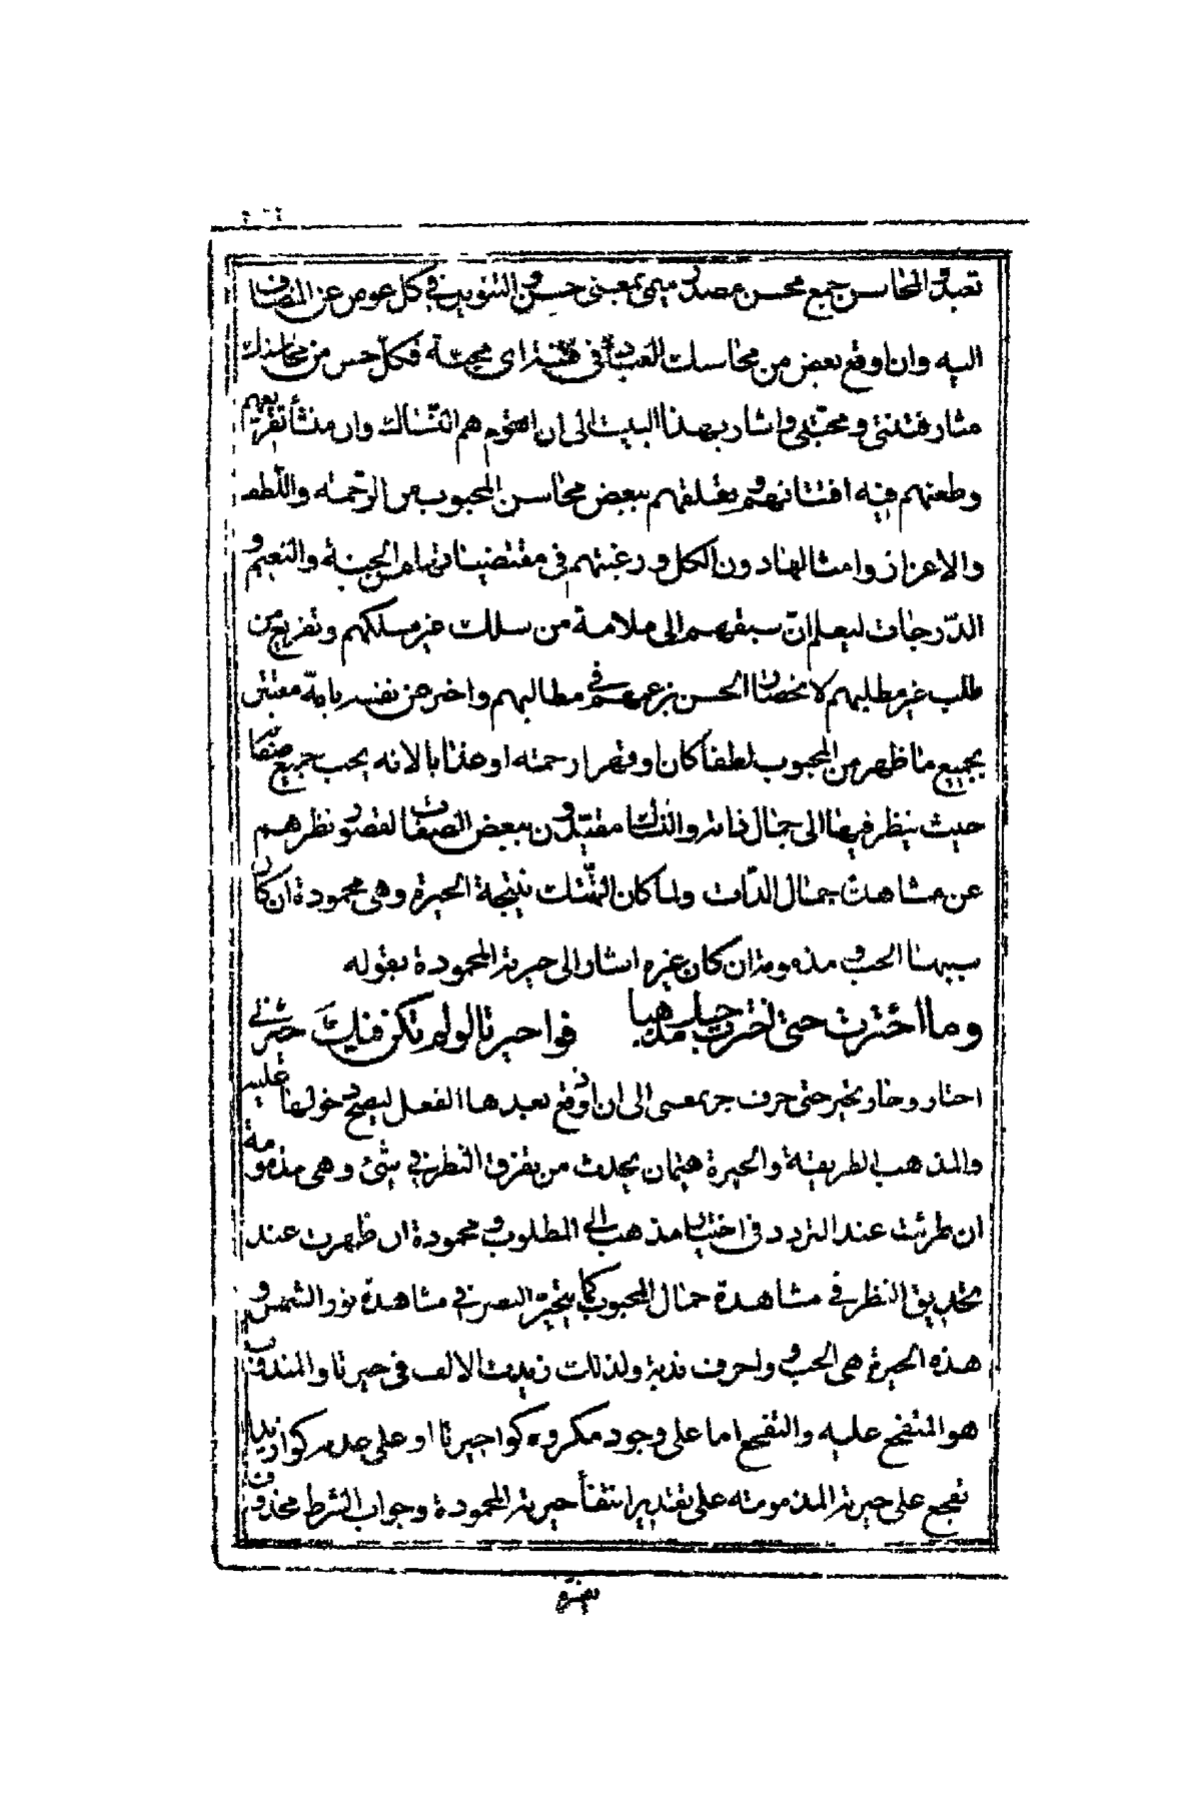 تعبدو المحاسن جمع محسن مصدر ميمى بمعنى حسن والتنوين فى كل عوض عن المضاف
اليه وان اوقع بعض من محاسنك العباد فى فتنة اى محبّة فكلّ حسن من محاسنك
مثار فتنتى ومحبّتى واشار بهذا البيت الى ان القوم هم النسّاك وان منشأ تقريعهم
وطعنهم فيه افتتانهم وتعلقهم ببعض محاسن المحبوب من الرّحمة واللّطف
والاعزاز وامثالها دون الكل ورغبتهم فى مقتضياتها من الجنة والنعيم و
الدّرجات ليعلم انّ سبقهم الى ملامة من سلك غير مسلكهم وتقريع من
طلب غير مطلبهم لانحصار الحسن بزعمهم فى مطالبهم واخبر عن نفسه بانّه مفتتن
بجميع ما ظهر من المحبوب لطفا كان او قهرا رحمته او عذابا لانه يحب جميع صفاته
حيث ينظر فيها الى جمال ذاته والنساك مقيّدون ببعض الصفات لقصور نظرهم
عن مشاهدة جمال الذّات ولما كان التهتّك نتيجة الحيرة وهى محمودة ان كان
سببها الحب ومذمومة ان كان غيره اشار الى حيرته المحمودة بقوله
وما احترت حتى اخترت حبيك مذهبا فواحيرتا لو لم تكن فيك حيرتى
اختار وحار تحير حتى حرف جر بمعنى الى ان اوقع بعدها الفعل ليصح دخولها عليه
والمذهب الطريقة والحيرة هيمان يحدث من تفرق النظر فى شئ وهى مذمومة
ان طرئت عند التردد فى اختيار مذهب الى المطلوب ومحمودة ان ظهرت عند
تحديق النظر فى مشاهدة جمال المحبوب كما يتحير البصر فى مشاهدة نور الشمس و
هذه الحيرة هى الحب ووا حرف ندبة ولذلك زيدت الالف فى حيرتا والمندوب
هو المتفجع عليه والتفجع اما على وجود مكروه كوا حيرتا او على عدمه كوا زيدا
تفجع على حيرته المذمومته على تقدير انتفأ حيرته المحمودة وجواب الشرط محذوف